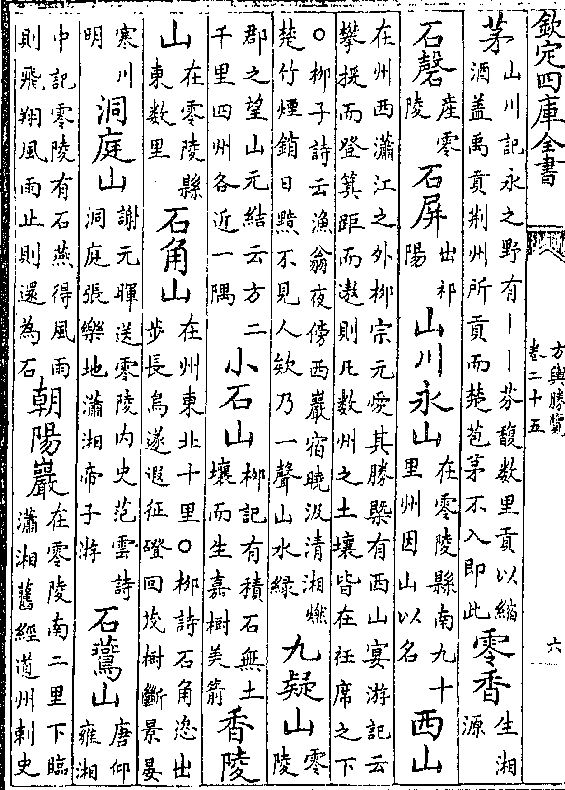 欽定四庫全書
方輿勝覽
卷二十五
六
茅山川記永之野有——芬馥數里貢以縮酒蓋禹貢荆州所貢而楚苞茅不入即此零香生湘源
石磬產零陵石屏出祁陽山川永山在零陵縣南九十里州因山以名西山
在州西瀟江之外栁宗元愛其勝槩有西山宴游記云攀援而登箕距而遨則凡數州之土壤皆在衽席之下
○栁子詩云漁翁夜傍西巖宿曉汲清湘燃楚竹煙銷日黲不見人欸乃一聲山水緑九疑山零陵
郡之望山元結云方二千里四州各近一隅小石山栁記有積石無土壤而生嘉樹美箭香陵
山在零陵縣東数里石角山在州東北十里○栁詩石角恣出步長烏遂遐征磴回茂樹斷景晏
寒川明洞庭山謝元暉送零陵内史范雲詩洞庭張樂地瀟湘帝子游石鷰山唐仰雍湘
中記零陵有石燕得風雨則飛翔風雨止則還為石朝陽巖在零陵南二里下臨瀟湘舊經道州刺史